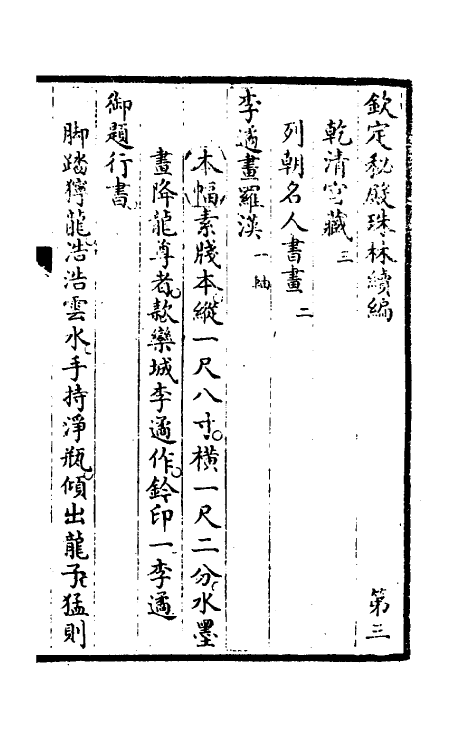 欽定秘殿珠林續編　第三
乾清宮藏三
列朝名人書畫二
李遹畫羅漢一軸
本幅素牋本縱一尺八寸橫一尺二分水墨
畫降龍尊者款欒城李遹作鈐印一李遹
御題行書
脚踏獰龍浩浩雲水手持淨瓶傾出龍子猛則